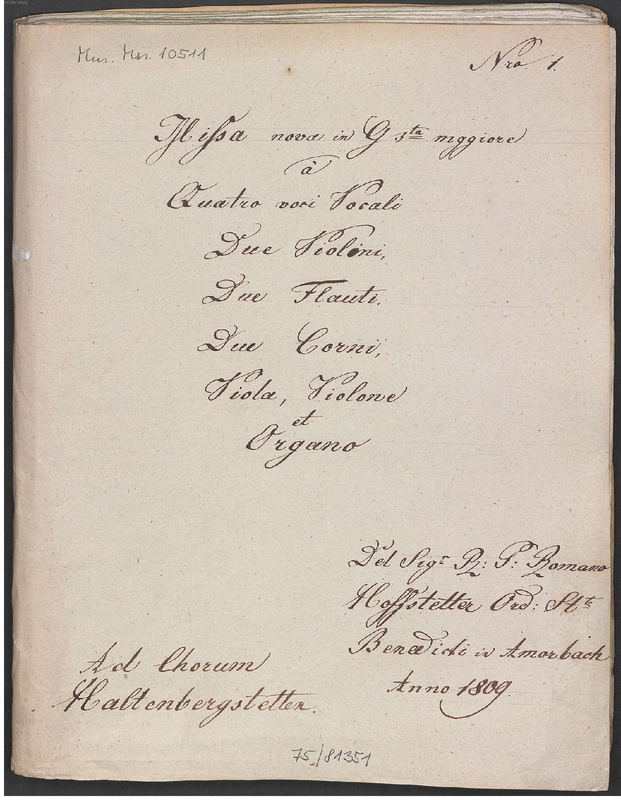 Mus. Mss. 10511
Nro. 1.
Missa nova in G 3ta mggiore
à
Quatro voci Vocali
Due Violini,
Due Flauti,
Due Corni,
Viola, Violone
et
Organo
Del Sigr R: P: Romano
Hoffstetter Ord: Sti
Benedicti in Amorbach
Anno 1809.
Ad Chorum
Haltenbergstetten.
75/81351